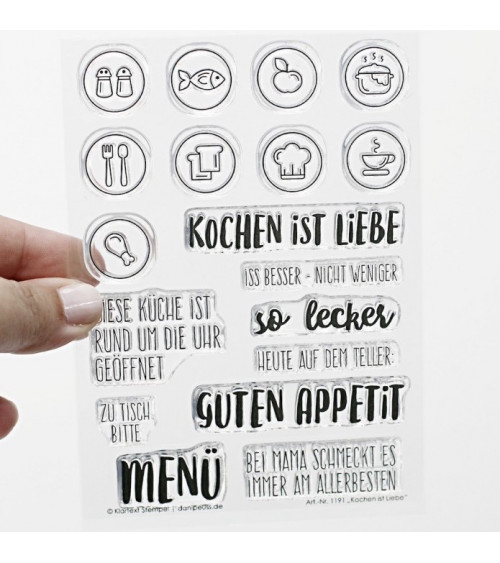 KOCHEN iST LiEBE
ISS BESSER - NICHT WENIGER
DIESE KÜCHE IST
RUND UM DIE UHR
GEÖFFNET
so lecker
HEUTE AUF DEM TELLER:
ZU TISCH
BITTE
GUTEN APPETiT
MENÜ
BEI MAMA SCHMECKT ES
IMMER AM ALLERBESTEN
© Klartext Stempel | danipeuss.de
Art.-Nr. 1191 „Kochen ist Liebe"